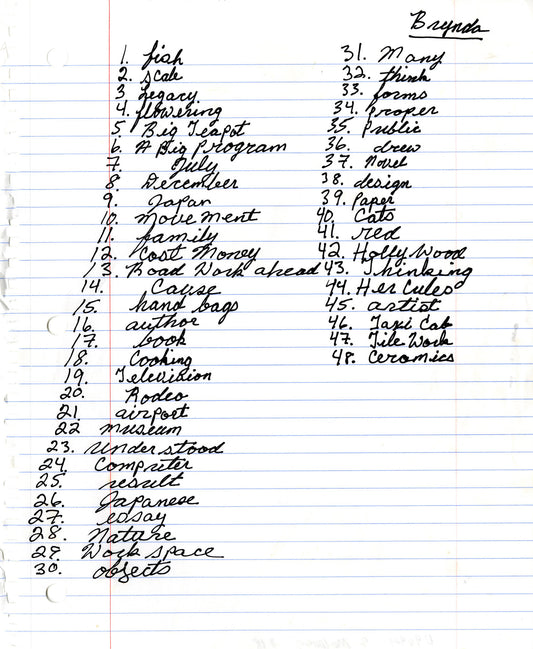 Brynda
1. fish
2. scale
3 Legacy
4. flowering
5 Big Teapot
6. A Big Program
7. July
8. December
9. Japan
10. Movement
11. family
12. Cost Money
13. Road Work ahead
14. Cause
15. hand bags
16. author
17. book
18. Cooking
19. Television
20. Rodeo
21. airport
22 museum
23. understood
24. Computer
25. result
26. Japanese
27. essay
28. Nature
29. Work space
30. objects
31. Many
32. think
33. forms
34. proper
35. Public
36. drew
37. Novel
38. design
39. Paper
40. Cats
41. red
42. Holly Wood
43. Thinking
44. Hercules
45. artist
46. Taxi Cab
47. Tile Work
48. Ceramics